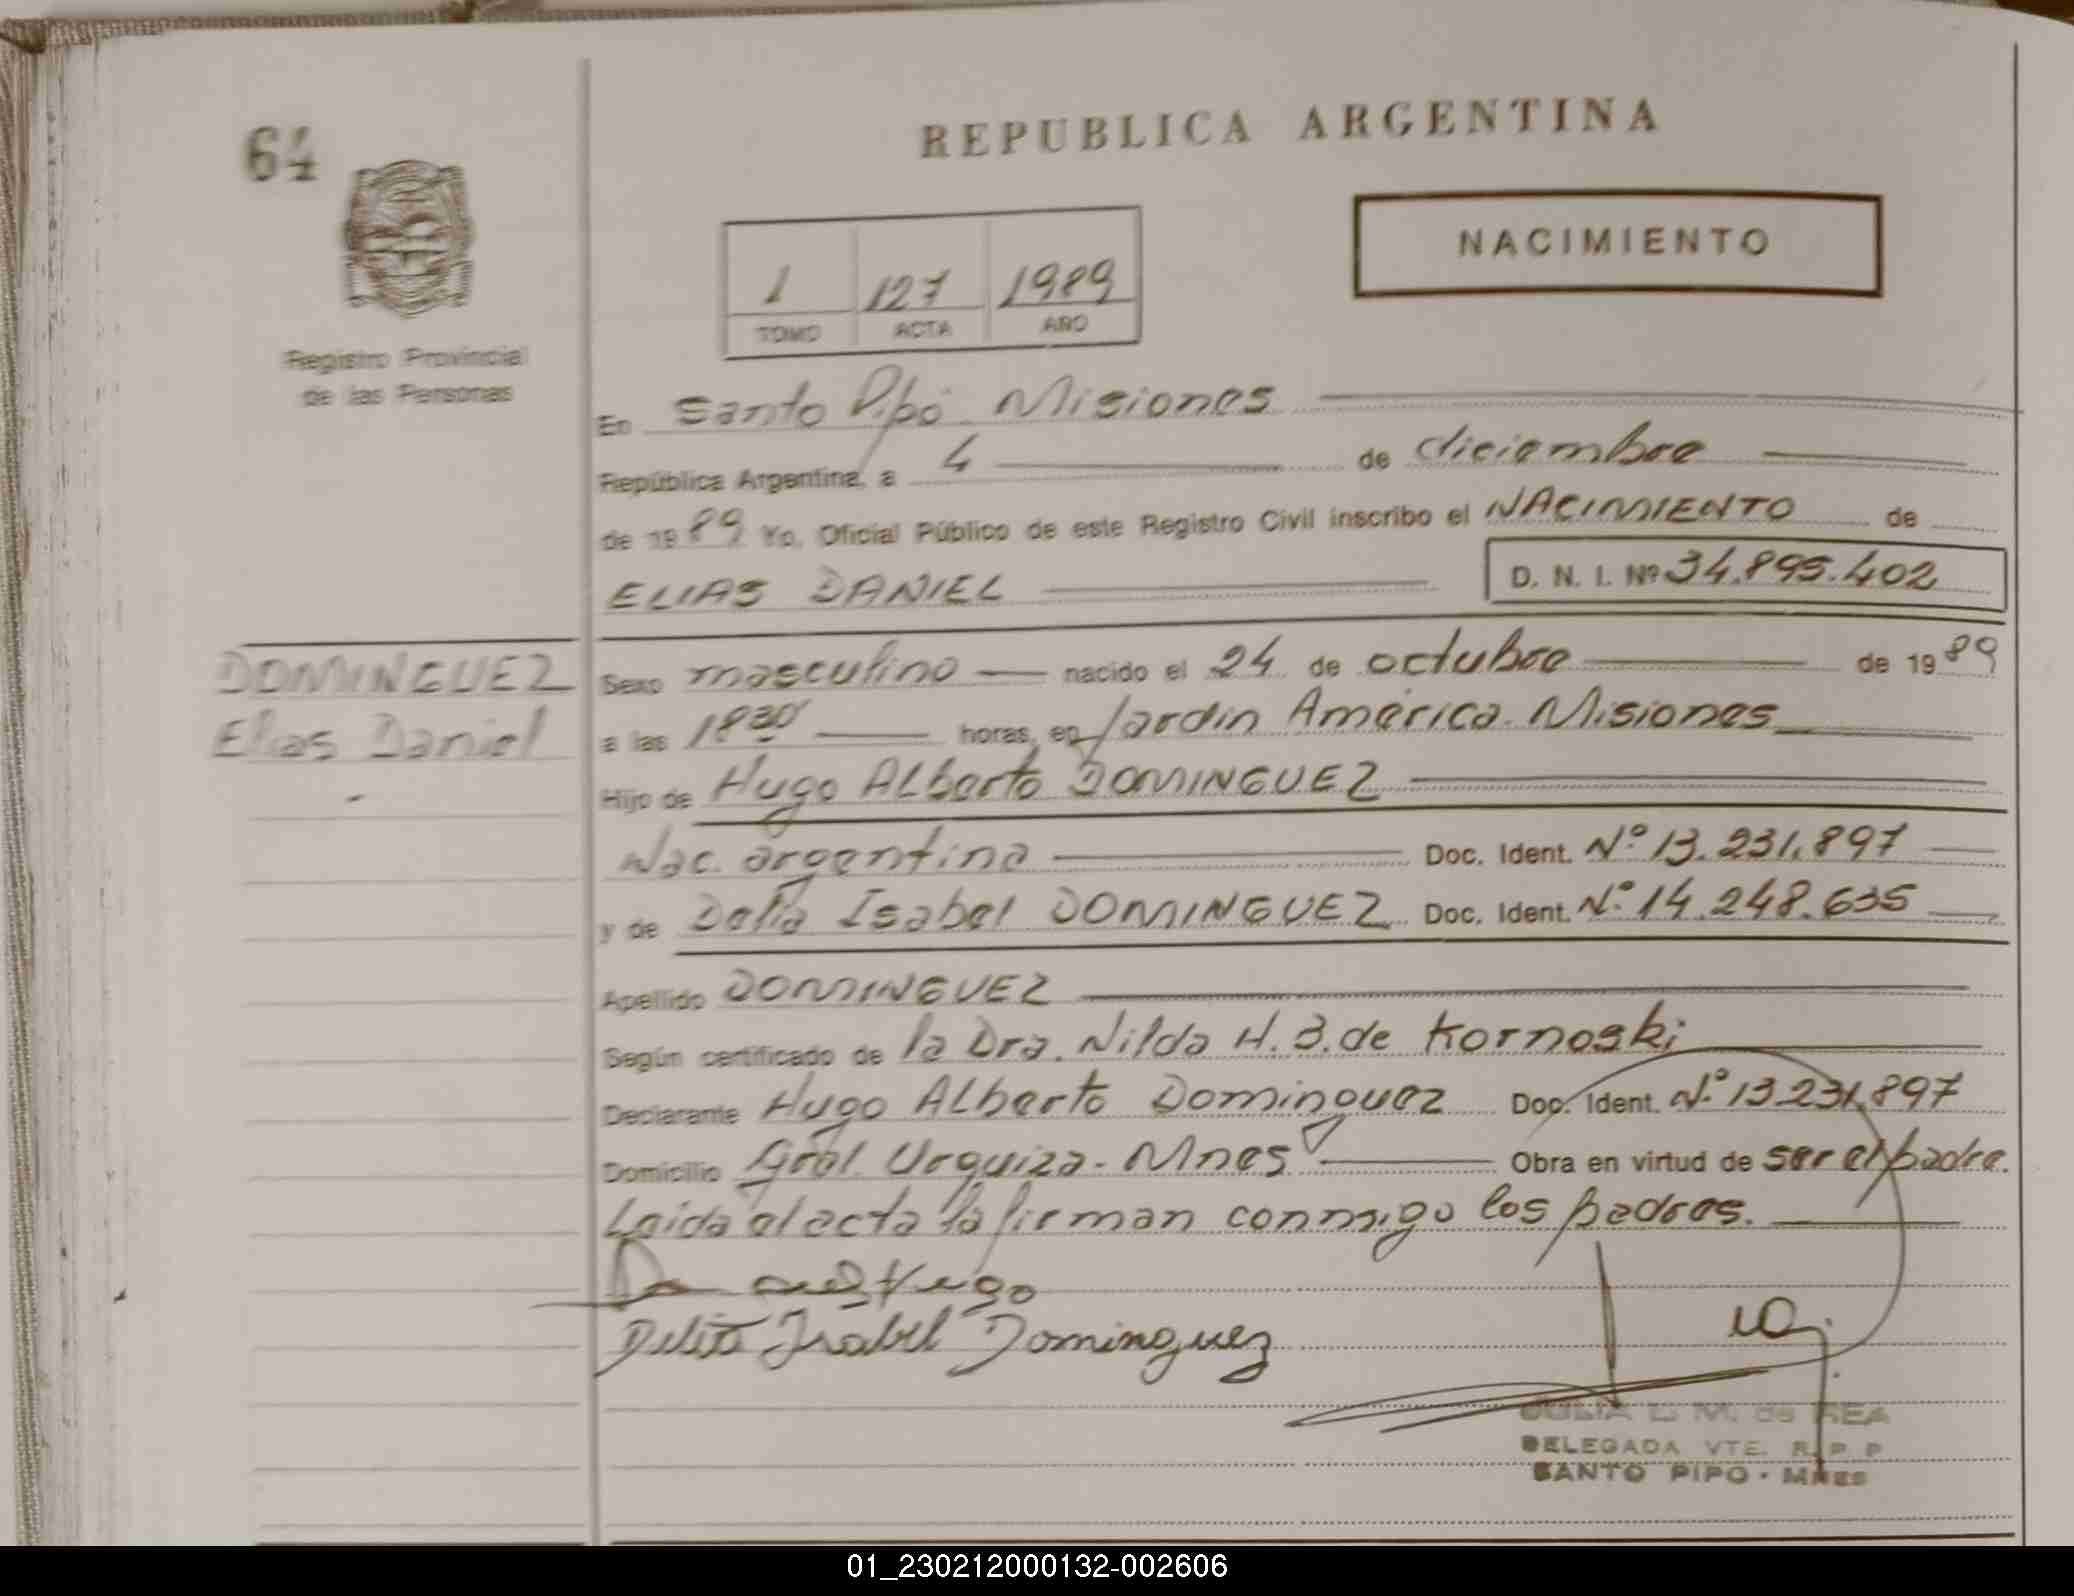 64
REPUBLICA ARGENTINA
NACIMIENTO
1 127 1989
TOMO ACTA AÑO
Registro Provincial
de las Personas
En Santo Pipó Misiones
República Argentina, a 4 de diciembre
de 1989 Yo, Oficial Público de este Registro Civil inscribo el NACIMIENTO de
ELIAS DANIEL D. N. I. Nº 34.895.402
DOMINGUEZ
Elias Daniel
Sexo masculino nacido el 24 de octubre de 1989
a las 1830 horas, en Jardin América Misiones
Hijo de Hugo Alberto DOMINGUEZ
Nac. argentina Doc. Ident. Nº 13.231.897
y de Delia Isabel DOMINGUEZ Doc. Ident. Nº 14.248.635
Apellido DOMINGUEZ
Según certificado de la Dra. Nilda H. B. de Kornoski
Declarante Hugo Alberto Dominguez Doc. Ident. Nº 13.231.897
Domicilio Gral. Urquiza - Mnes Obra en virtud de ser el padre.
Leida el acta la firman conmigo los padres.
Delia Isabel Dominguez
L. M. de REA
DELEGADA VTE. R. P. P
SANTO PIPO - MNES
01_230212000132-002606